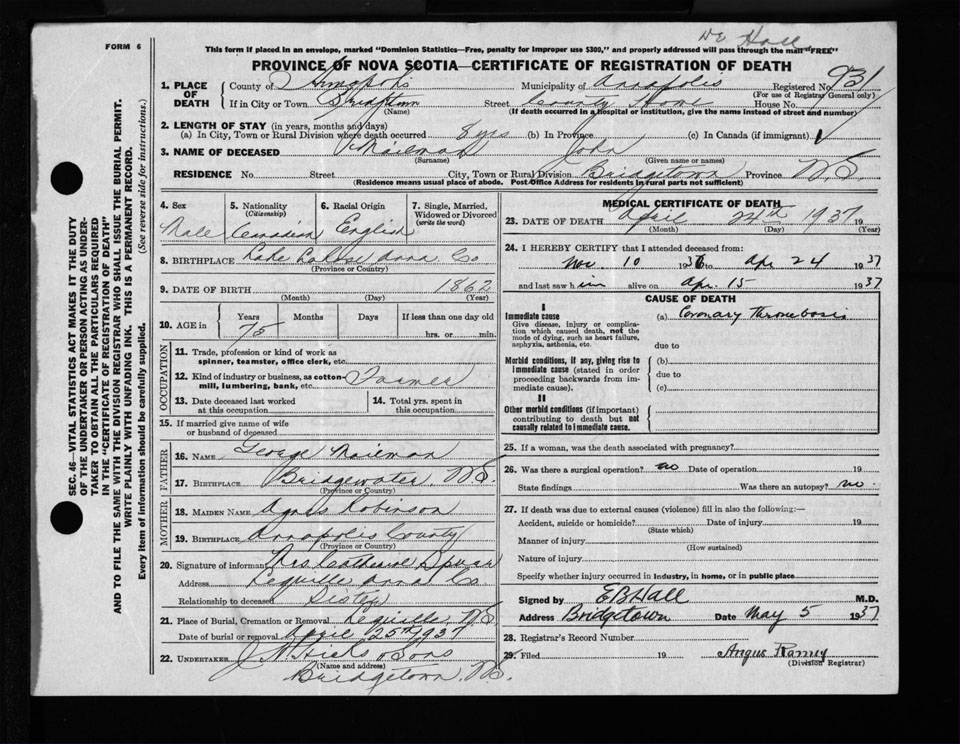 Dr Hall
FORM 6
This form if placed in an envelope, marked "Dominion Statistics—Free, penalty for improper use $300," and properly addressed will pass through the mail "FREE"
PROVINCE OF NOVA SCOTIA—CERTIFICATE OF REGISTRATION OF DEATH
1. PLACE OF DEATH
County of Annapolis Municipality of Annapolis Registered No. 931
(For use of Registrar General only)
If in City or Town Bridgetown Street County Home House No.
(Name) (If death occurred in a hospital or institution, give the name instead of street and number)
2. LENGTH OF STAY (in years, months and days)
(a) In City, Town or Rural Division where death occurred 8 yrs (b) In Province (c) In Canada (if immigrant)
3. NAME OF DECEASED Mailman John
(Surname) (Given name or names)
RESIDENCE No. Street City, Town or Rural Division Bridgetown Province N.S.
(Residence means usual place of abode. Post Office Address for residents in rural parts not sufficient)
4. Sex 5. Nationality (Citizenship) 6. Racial Origin 7. Single, Married, Widowed or Divorced (write the word)
Male Canadian English
8. BIRTHPLACE Lake Anna Co
(Province or Country)
9. DATE OF BIRTH 1862
(Month) (Day) (Year)
10. AGE in Years Months Days If less than one day old
75 hrs. or min.
OCCUPATION
11. Trade, profession or kind of work as spinner, teamster, office clerk, etc.
12. Kind of industry or business, as cotton-mill, lumbering, bank, etc. Farmer
13. Date deceased last worked at this occupation
14. Total yrs. spent in this occupation
15. If married give name of wife or husband of deceased
FATHER
16. NAME George Mailman
17. BIRTHPLACE Bridgewater, N.S.
(Province or Country)
MOTHER
18. MAIDEN NAME Agnes Robinson
19. BIRTHPLACE Annapolis County
(Province or Country)
20. Signature of informant Mrs Catherine Spurr
Address Lequille Anna Co
Relationship to deceased Sister
21. Place of Burial, Cremation or Removal Lequille, N.S.
Date of burial or removal April 25th 1937
22. UNDERTAKER J.H. Hicks & Sons
(Name and address)
Bridgetown, N.S.
MEDICAL CERTIFICATE OF DEATH
23. DATE OF DEATH April 24th 1937
(Month) (Day) (Year)
24. I HEREBY CERTIFY that I attended deceased from:
Nov. 10 1936 to Apr 24 1937
and last saw him alive on Apr. 15 1937
CAUSE OF DEATH
I
Immediate cause
Give disease, injury or complication which caused death, not the mode of dying, such as heart failure, asphyxia, asthenia, etc.
(a) Coronary Thrombosis
due to
Morbid conditions, if any, giving rise to immediate cause (stated in order proceeding backwards from immediate cause).
(b)
due to
(c)
II
Other morbid conditions (if important) contributing to death but not causally related to immediate cause.
25. If a woman, was the death associated with pregnancy?
26. Was there a surgical operation? no Date of operation 19
State findings Was there an autopsy? no.
27. If death was due to external causes (violence) fill in also the following:—
Accident, suicide or homicide? Date of injury 19
(State which)
Manner of injury
(How sustained)
Nature of injury
Specify whether injury occurred in industry, in home, or in public place
Signed by E B Hall M.D.
Address Bridgetown Date May 5 1937
28. Registrar's Record Number
29. Filed 19 Angus Ramey
(Division Registrar)
SEC. 46—VITAL STATISTICS ACT MAKES IT THE DUTY
OF THE UNDERTAKER OR PERSON ACTING AS UNDER-
TAKER TO OBTAIN ALL THE PARTICULARS REQUIRED
IN THE "CERTIFICATE OF REGISTRATION OF DEATH"
AND TO FILE THE SAME WITH THE DIVISION REGISTRAR WHO SHALL ISSUE THE BURIAL PERMIT.
WRITE PLAINLY WITH UNFADING INK. THIS IS A PERMANENT RECORD.
Every item of information should be carefully supplied. (See reverse side for instructions.)